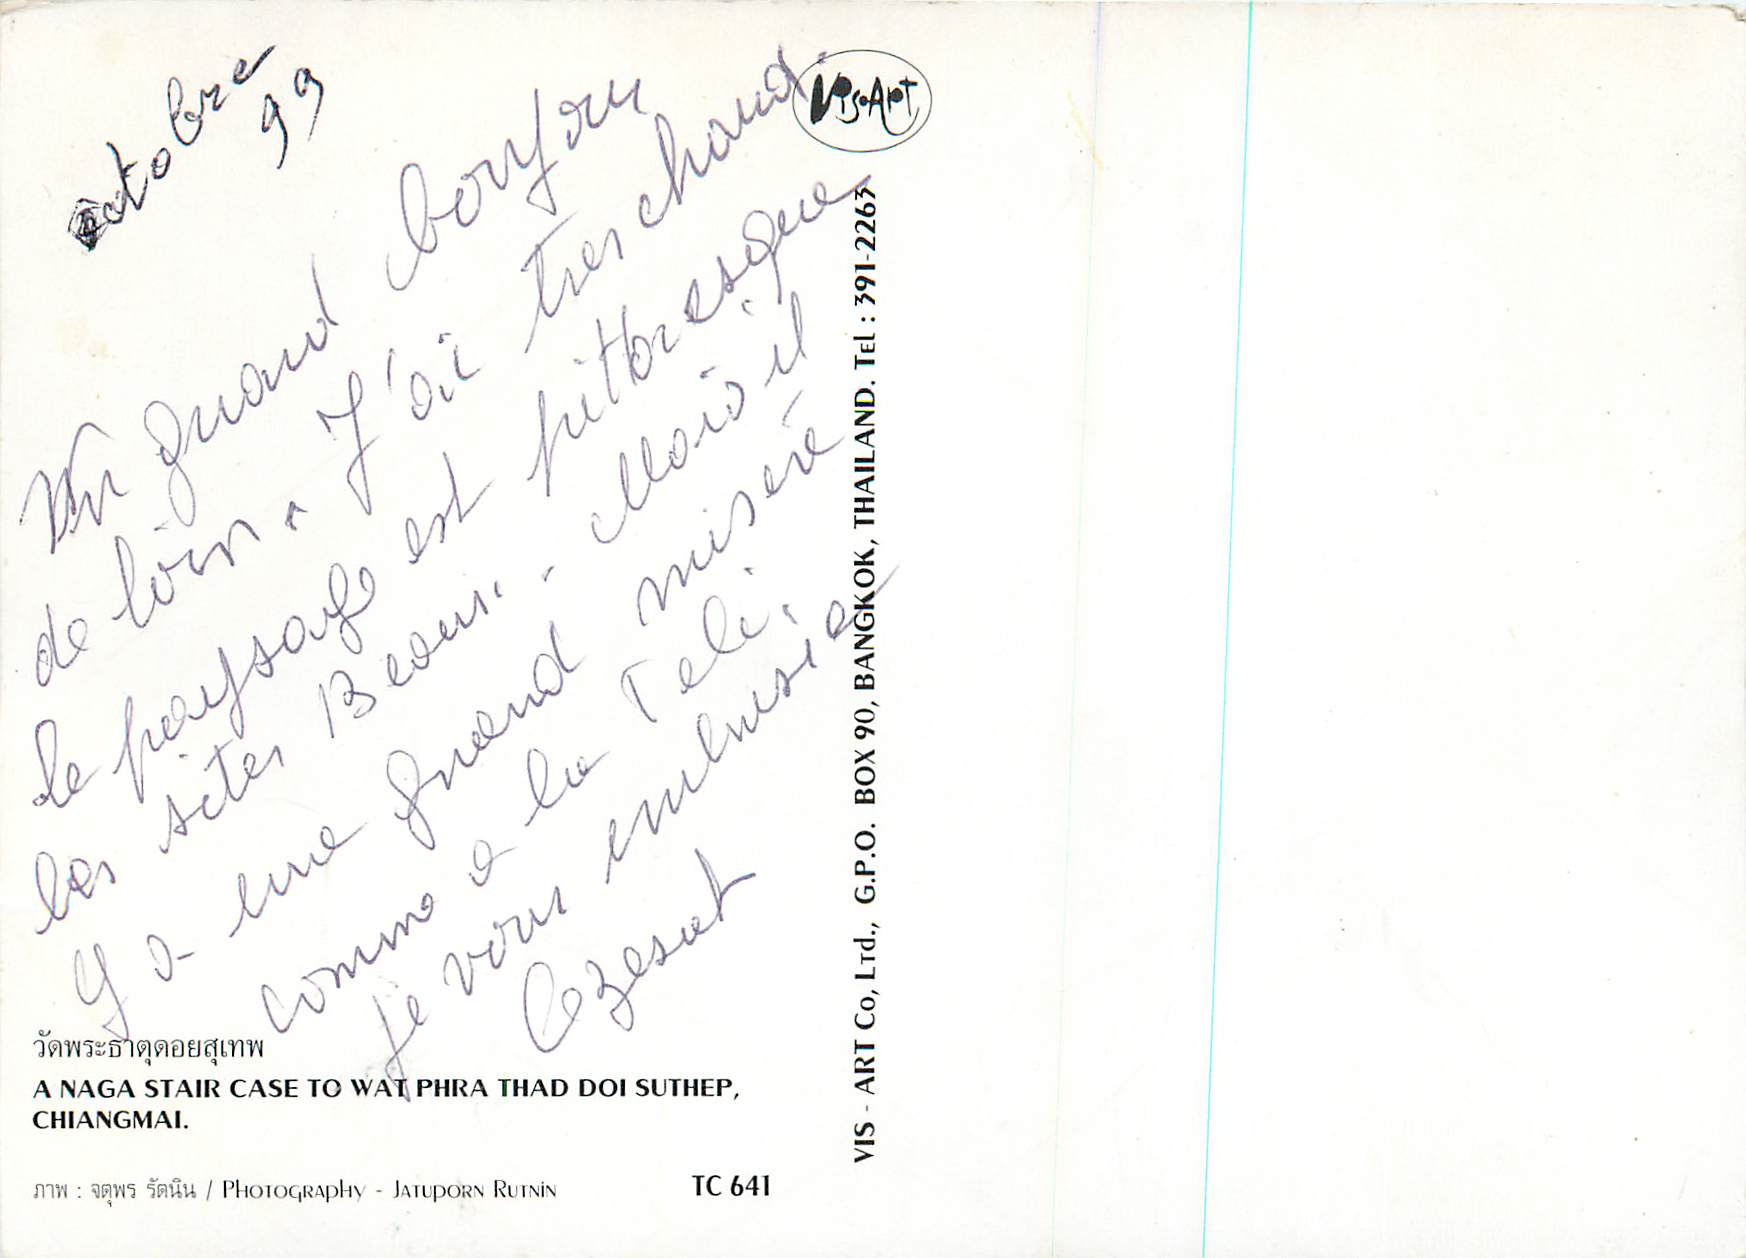 octobre
99
Un grand bonjour
de loin. J'ai tres chaud.
le paysage est pittoresque
les sites Beaux. Mais il
y a une grand miseré
comme a la Teli.
je vous
VIS•ART
VIS - ART Co, Ltd., G.P.O. BOX 90, BANGKOK, THAILAND. Tel : 391-2263
วัดพระธาตุดอยสุเทพ
A NAGA STAIR CASE TO WAT PHRA THAD DOI SUTHEP,
CHIANGMAI.
ภาพ : จตุพร รัตนิน / Photography - Jatuporn Rutnin
TC 641